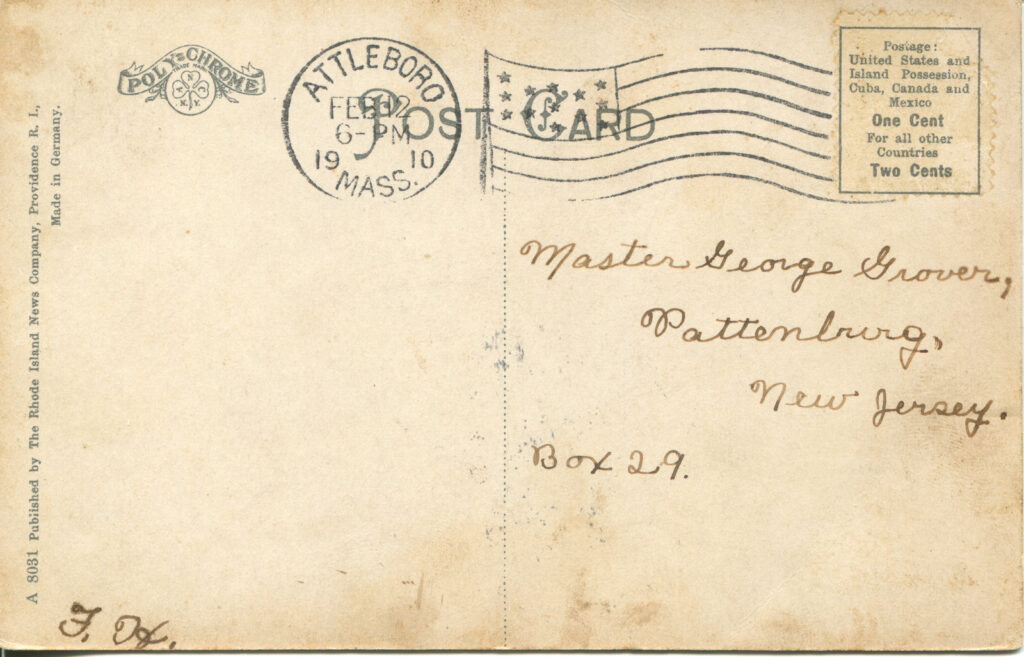 POLY-CHROME
TRADE MARK
A N C N.Y.
ATTLEBORO
FEB 12
6-PM
1910
MASS.
POST CARD
Postage:
United States and
Island Possession,
Cuba, Canada and
Mexico
One Cent
For all other
Countries
Two Cents
A 8031 Published by The Rhode Island News Company, Providence R. I.,
Made in Germany.
Master George Grover,
Pattenburg,
New Jersey.
Box 29.
F. H.